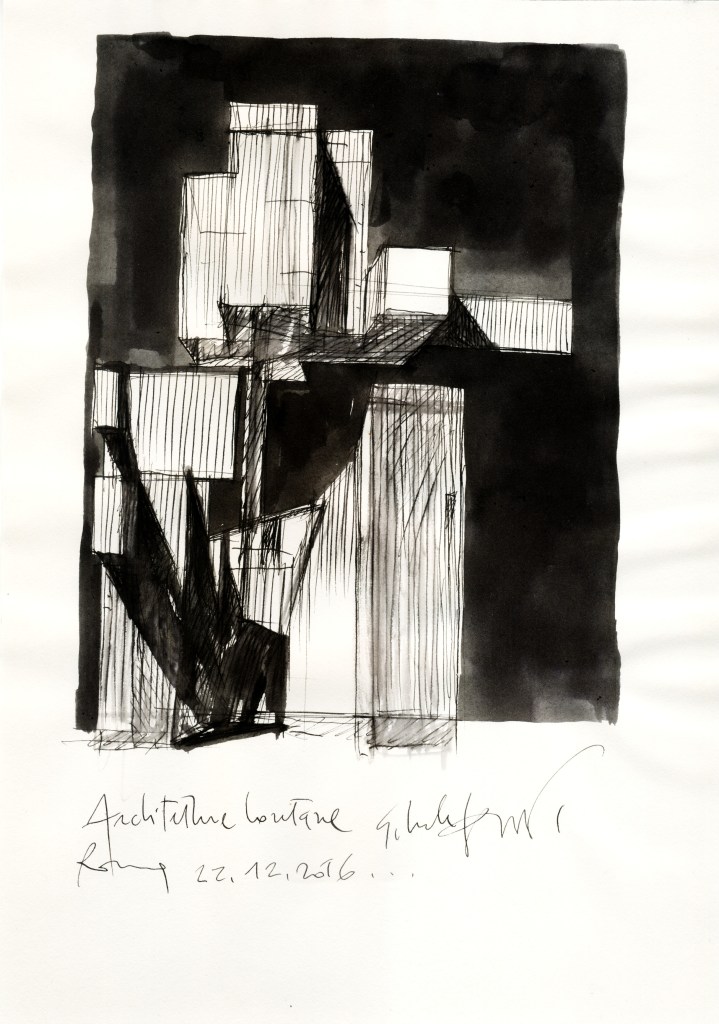 Architetture lontane
Roma 22.12.2016...